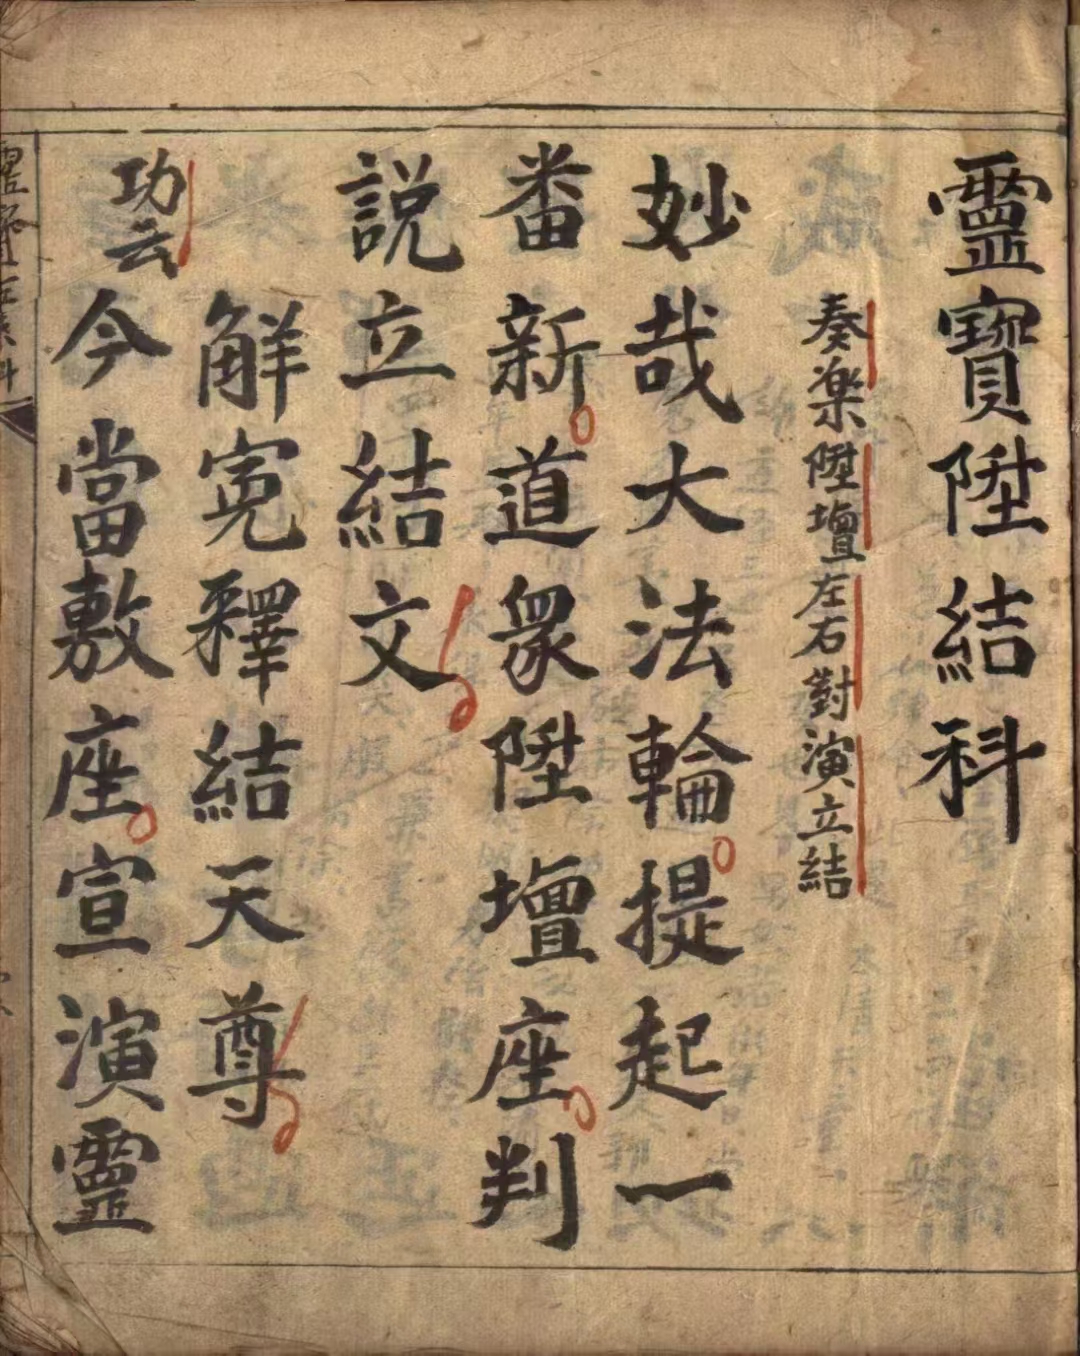 靈寶陞結科
奏楽陞壇左右對演立結
妙哉大法輪提起一
番新道衆陞壇座判
説立結文
觧寃釋結天尊
功云今當敷座宣演靈